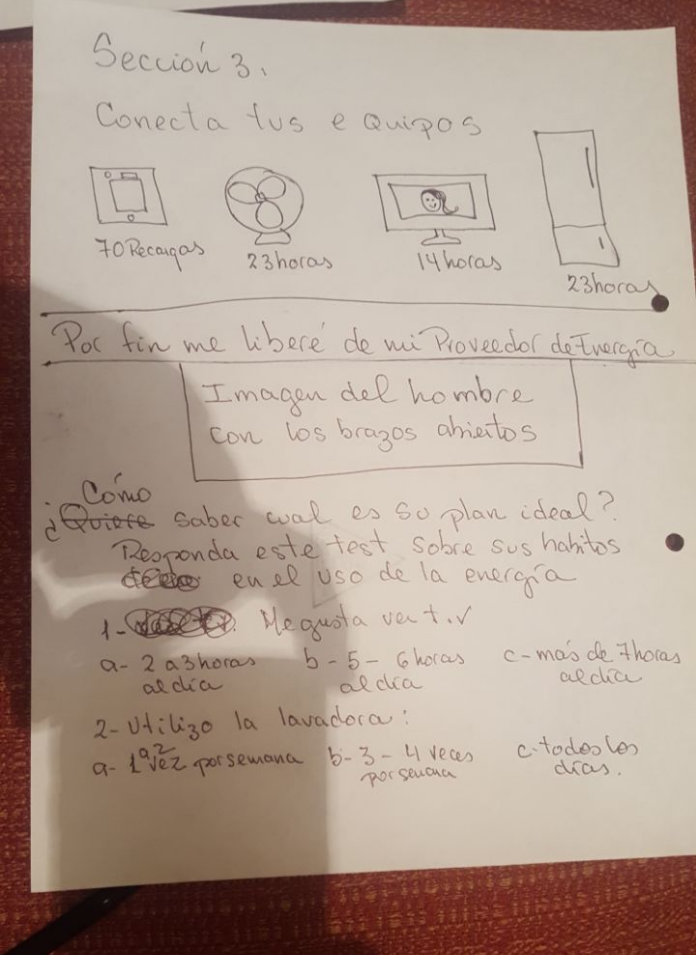 Sección 3.
Conecta tus equipos
70 Recargas
23 horas
14 horas
23 horas
Por fin me liberé de mi Proveedor de Energía
Imagen del hombre
con los brazos abiertos
Cómo
¿Quiere saber cual es su plan ideal?
Responda este test sobre sus habitos
en el uso de la energía
1- Me gusta ver t.v
a- 2 a 3 horas al día
b- 5 - 6 horas al día
c- más de 7 horas al día
2- Utilizo la lavadora:
a- 1 a 2 vez por semana
b- 3 - 4 veces por semana
c- todos los días.